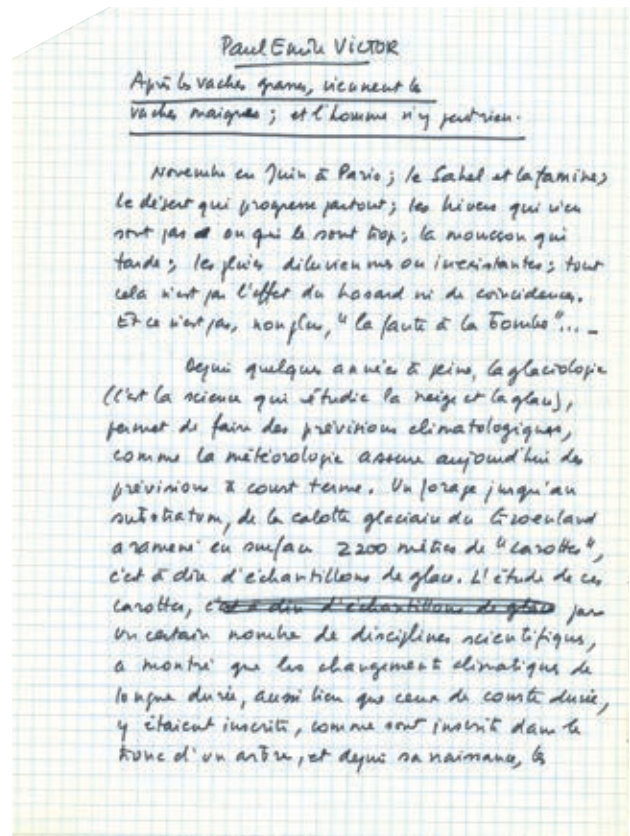 Paul Emile VICTOR
Après les vaches grasses, viennent les
vaches maigres ; et l'homme n'y peut rien.
Novembre en Juin à Paris ; le Sahel et la famine ;
le désert qui progresse partout ; les hivers qui n'en
sont pas ou qui le sont trop ; la mousson qui
tarde ; les pluies diluviennes ou inexistantes ; tout
cela n'est pas l'effet du hasard ni de coïncidences.
Et ce n'est pas, non plus, "la faute à la bombe"...
Depuis quelques années à peine, la glaciologie
(c'est la science qui étudie la neige et la glace),
permet de faire des prévisions climatologiques,
comme la météorologie assure aujourd'hui des
prévisions à court terme. Un forage jusqu'au
substratum, de la calotte glaciaire du Groenland
a ramené en surface 2200 mètres de "carottes",
c'est à dire d'échantillons de glace. L'étude de ces
carottes, c'est à dire d'échantillons de glace par
un certain nombre de disciplines scientifiques,
a montré que les changements climatiques de
longue durée, aussi bien que ceux de courte durée,
y étaient inscrits, comme sont inscrits dans le
tronc d'un arbre, et depuis sa naissance, les